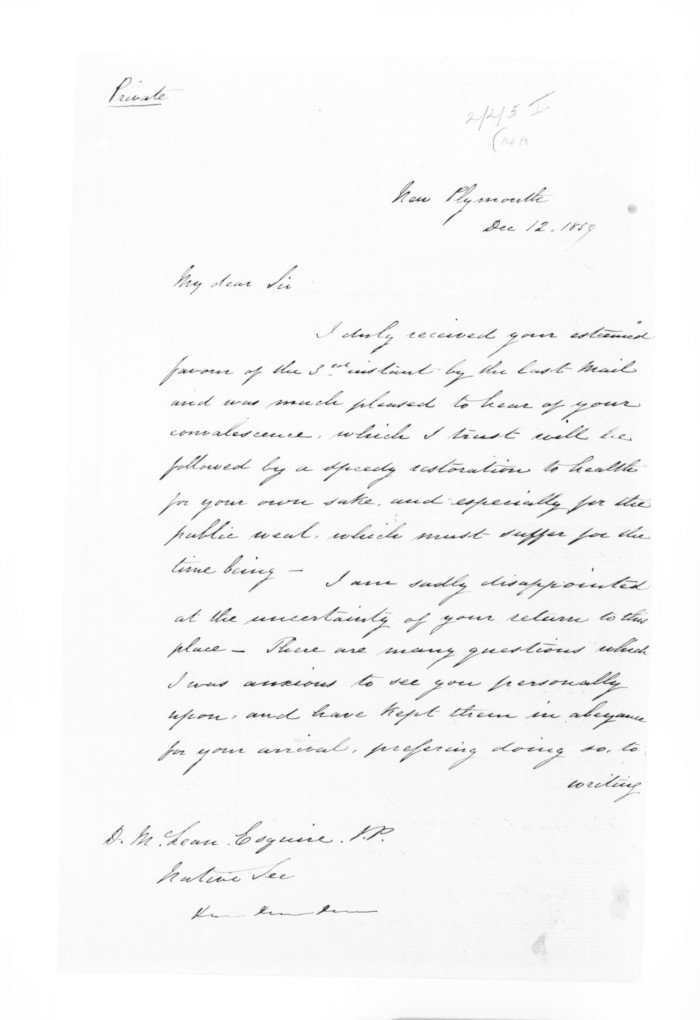 Private
2/2/5 I
(14A
New Plymouth
Dec 12. 1859
My dear Sir
I duly received your esteemed
favour of the 3rd instant by the last Mail
and was much pleased to hear of your
convalescence, which I trust will be
followed by a speedy restoration to health
for your own sake, and especially for the
public weal, which must suffer for the
time being – I am sadly disappointed
at the uncertainty of your return to this
place – There are many questions which
I was anxious to see you personally
upon, and have kept them in abeyance
for your arrival, prefering doing so, to
writing
D. McLean Esquire J.P.
Native Sec